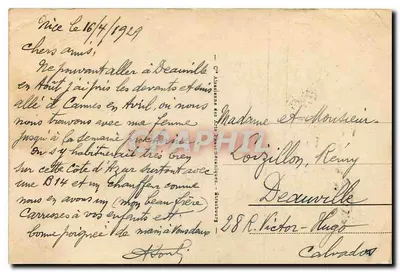 Nice le 16/4/1929
Chers amis,
Ne pouvant aller à Deauville
en Août j'ai pris les devants et suis
allé à Cannes en Avril, où nous
nous trouvons avec ma femme
jusqu'à la semaine
On s'y habituerait très bien
sur cette Côte d'Azur surtout avec
une B14 et un chauffeur comme
nous en avons un (mon beau frère)
Caresses à vos enfants et
bonne poignée de main à vous deux
Madame et Monsieur
Loizillon, Rémy
Deauville
28 R. Victor-Hugo
Calvados
DELCAMPE